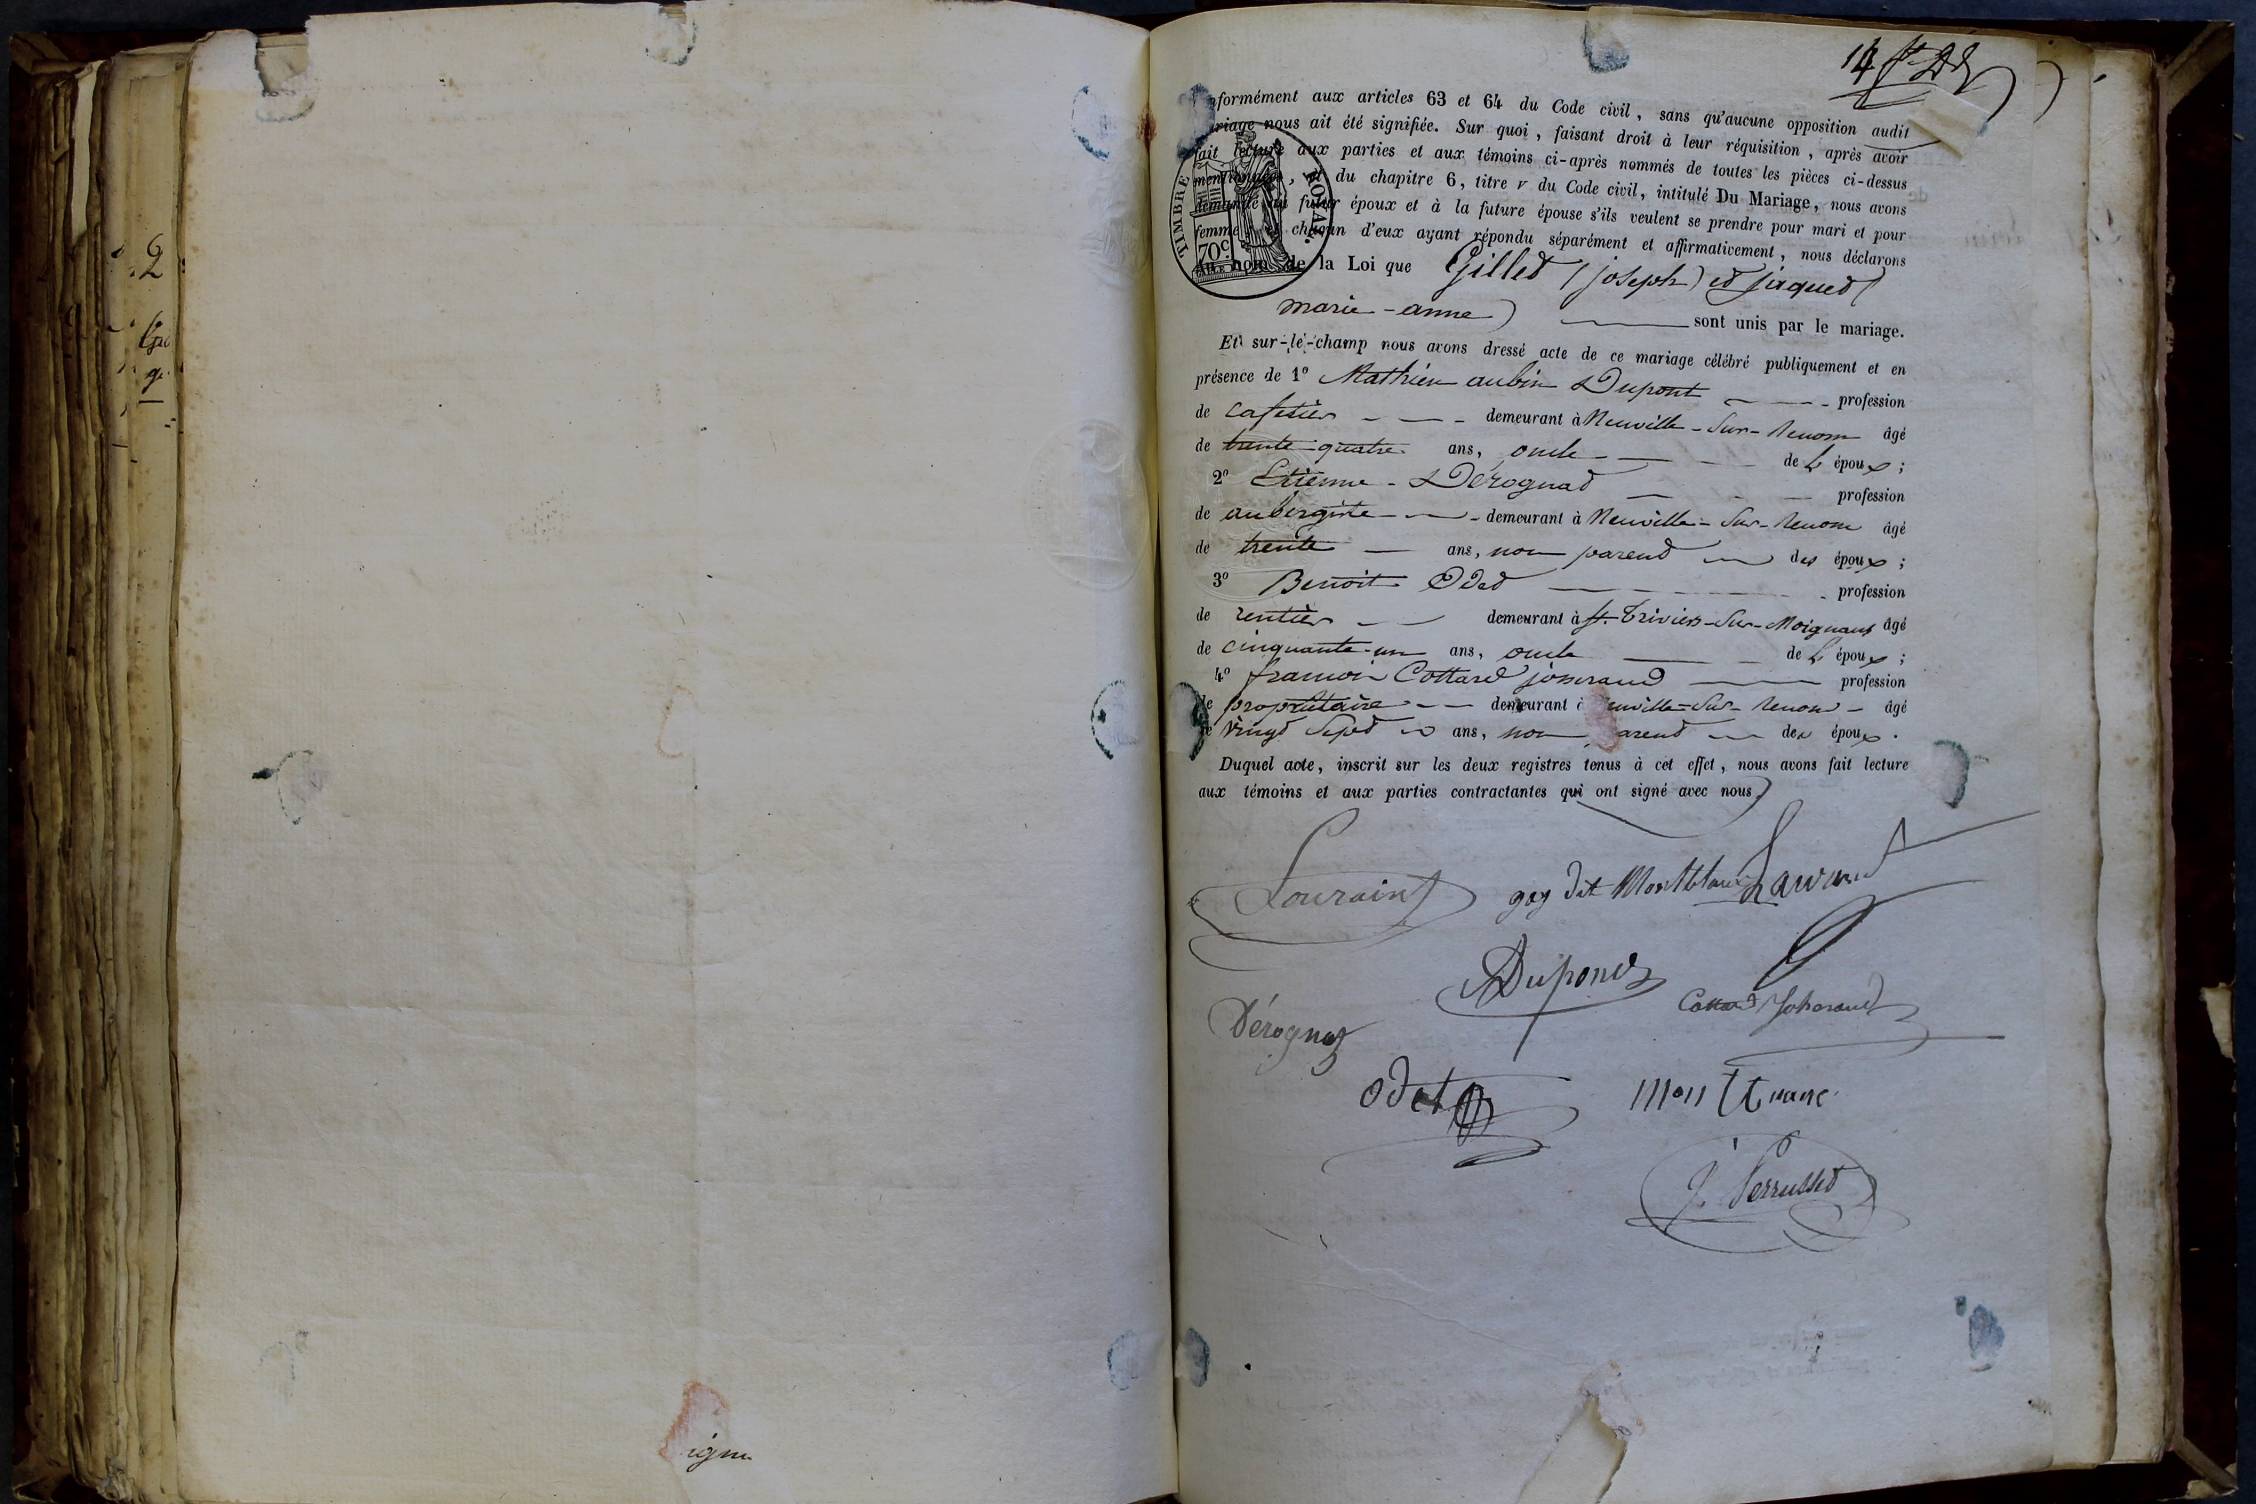 2
ign
14
conformément aux articles 63 et 64 du Code civil, sans qu'aucune opposition audit
mariage nous ait été signifiée. Sur quoi, faisant droit à leur réquisition, après avoir
fait lecture aux parties et aux témoins ci-après nommés de toutes les pièces ci-dessus
mentionnées, du chapitre 6, titre v du Code civil, intitulé Du Mariage, nous avons
demandé au futur époux et à la future épouse s'ils veulent se prendre pour mari et pour
femme, et chacun d'eux ayant répondu séparément et affirmativement, nous déclarons
au nom de la Loi que Gillet (joseph) et jaquet (
marie-anne) sont unis par le mariage.
TIMBRE ROYAL. 70 c.
Et sur-le-champ nous avons dressé acte de ce mariage célébré publiquement et en
présence de 1º Mathieu aubin Dupont profession
de cafetier demeurant à Neuville-Sur-Renom âgé
de trente quatre ans, oncle de L'époux ;
2º Etienne Dérognat profession
de aubergiste demeurant à Neuville-Sur-Renom âgé
de trente ans, non parent des époux ;
3º Benoit Odet profession
de rentier demeurant à St. Triviers-Sur-Moignans âgé
de cinquante-un ans, oncle de L'époux ;
4º francois Cottard josserand profession
de propriétaire demeurant à Neuville-Sur-Renom âgé
de vingt Sept ans, non parent des époux.
Duquel acte, inscrit sur les deux registres tenus à cet effet, nous avons fait lecture
aux témoins et aux parties contractantes qui ont signé avec nous
Lourain gay dit Montblanc
Dupont
Cottard Josserand
Dérognat
Odet
J. Perrusset